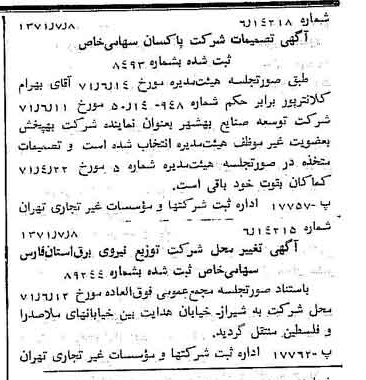 شماره ۶/۱۴۲۱۸ ۱۳۷۱/۷/۸
آگهی تصمیمات شرکت پاکسان سهامی‌خاص
ثبت شده بشماره ۸۴۹۳
طبق صورتجلسه هیئت‌مدیره مورخ ۷۱/۶/۱۴ آقای بهرام
کلانترپور برابر حکم شماره ۹۴۸-۵۰/۱۴ مورخ ۷۱/۶/۱۱
شرکت توسعه صنایع بهشهر بعنوان نماینده شرکت بهپخش
بعضویت غیر موظف هیئت‌مدیره انتخاب شده است و تصمیمات
متخذه در صورتجلسه هیئت‌مدیره شماره ۵ مورخ ۷۱/۴/۲۲
کماکان بقوت خود باقی است.
پ-۱۷۷۵۷ اداره ثبت شرکتها و مؤسسات غیر تجاری تهران
شماره ۶/۱۴۲۱۵ ۱۳۷۱/۷/۸
آگهی تغییر محل شرکت توزیع نیروی برق‌استان‌فارس
سهامی‌خاص ثبت شده بشماره ۸۹۲۴۴
باستناد صورتجلسه مجمع‌عمومی فوق‌العاده مورخ ۷۱/۶/۱۲
محل شرکت به شیراز- خیابان هدایت بین خیابانهای ملاصدرا
و فلسطین منتقل گردید.
پ-۱۷۷۶۲ اداره ثبت شرکتها و مؤسسات غیر تجاری تهران